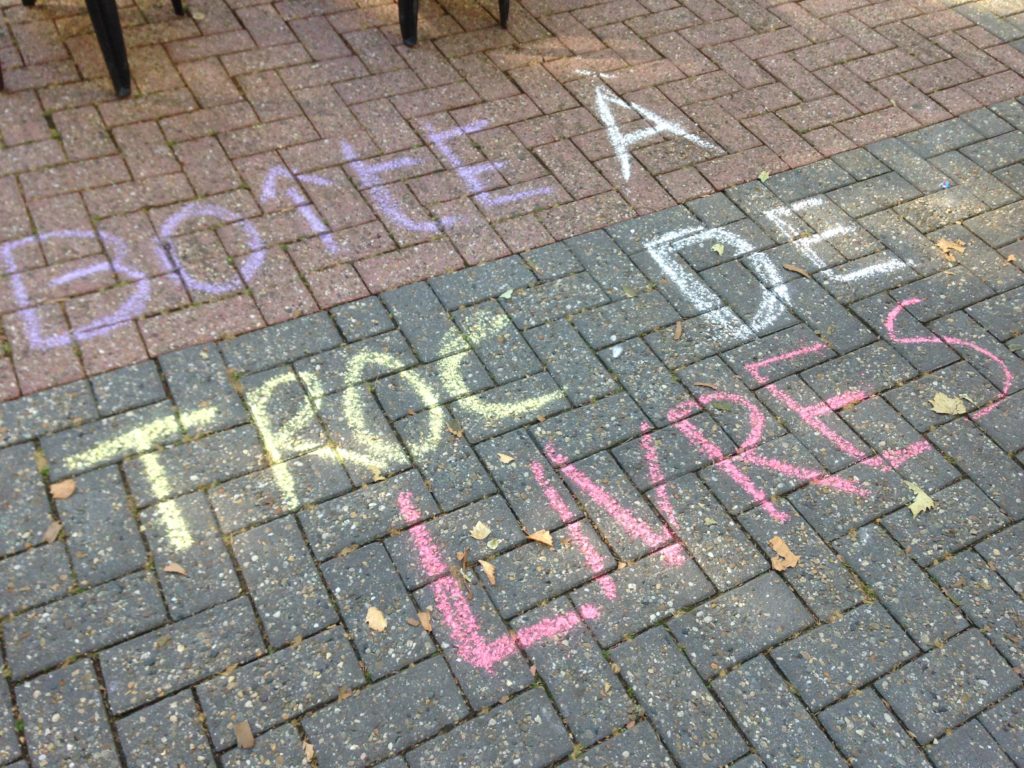 BOÎTE À
TROC DE
LIVRES